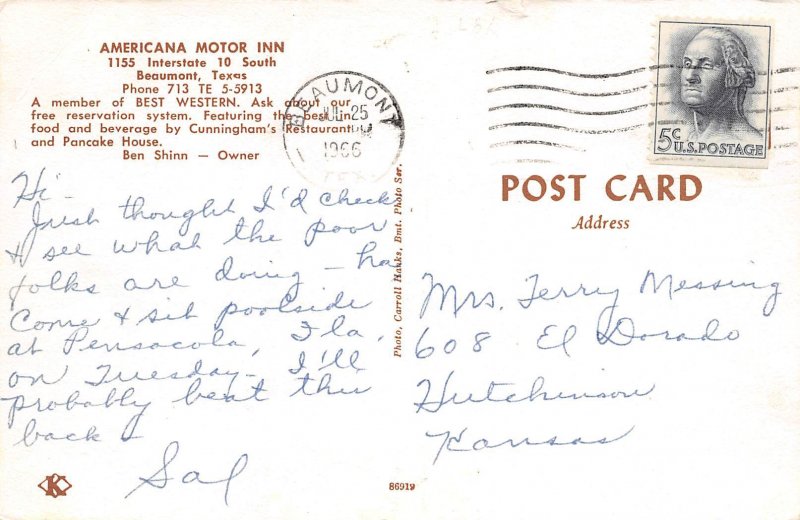 AMERICANA MOTOR INN
1155 Interstate 10 South
Beaumont, Texas
Phone 713 TE 5-5913
A member of BEST WESTERN. Ask about our
free reservation system. Featuring the best in
food and beverage by Cunningham's Restaurant
and Pancake House.
Ben Shinn — Owner
BEAUMONT
JUL 25
1966
5c
U.S. POSTAGE
POST CARD
Address
Hi -
Just thought I'd check
& see what the poor
folks are doing - ha
Come & sit poolside
at Pensacola, Fla,
on Tuesday - I'll
probably beat this
back -
Sal
Photo, Carroll Hawks, Bmt. Photo Ser.
Mrs. Terry Messing
608 El Dorado
Hutchinson
Kansas
K
86919